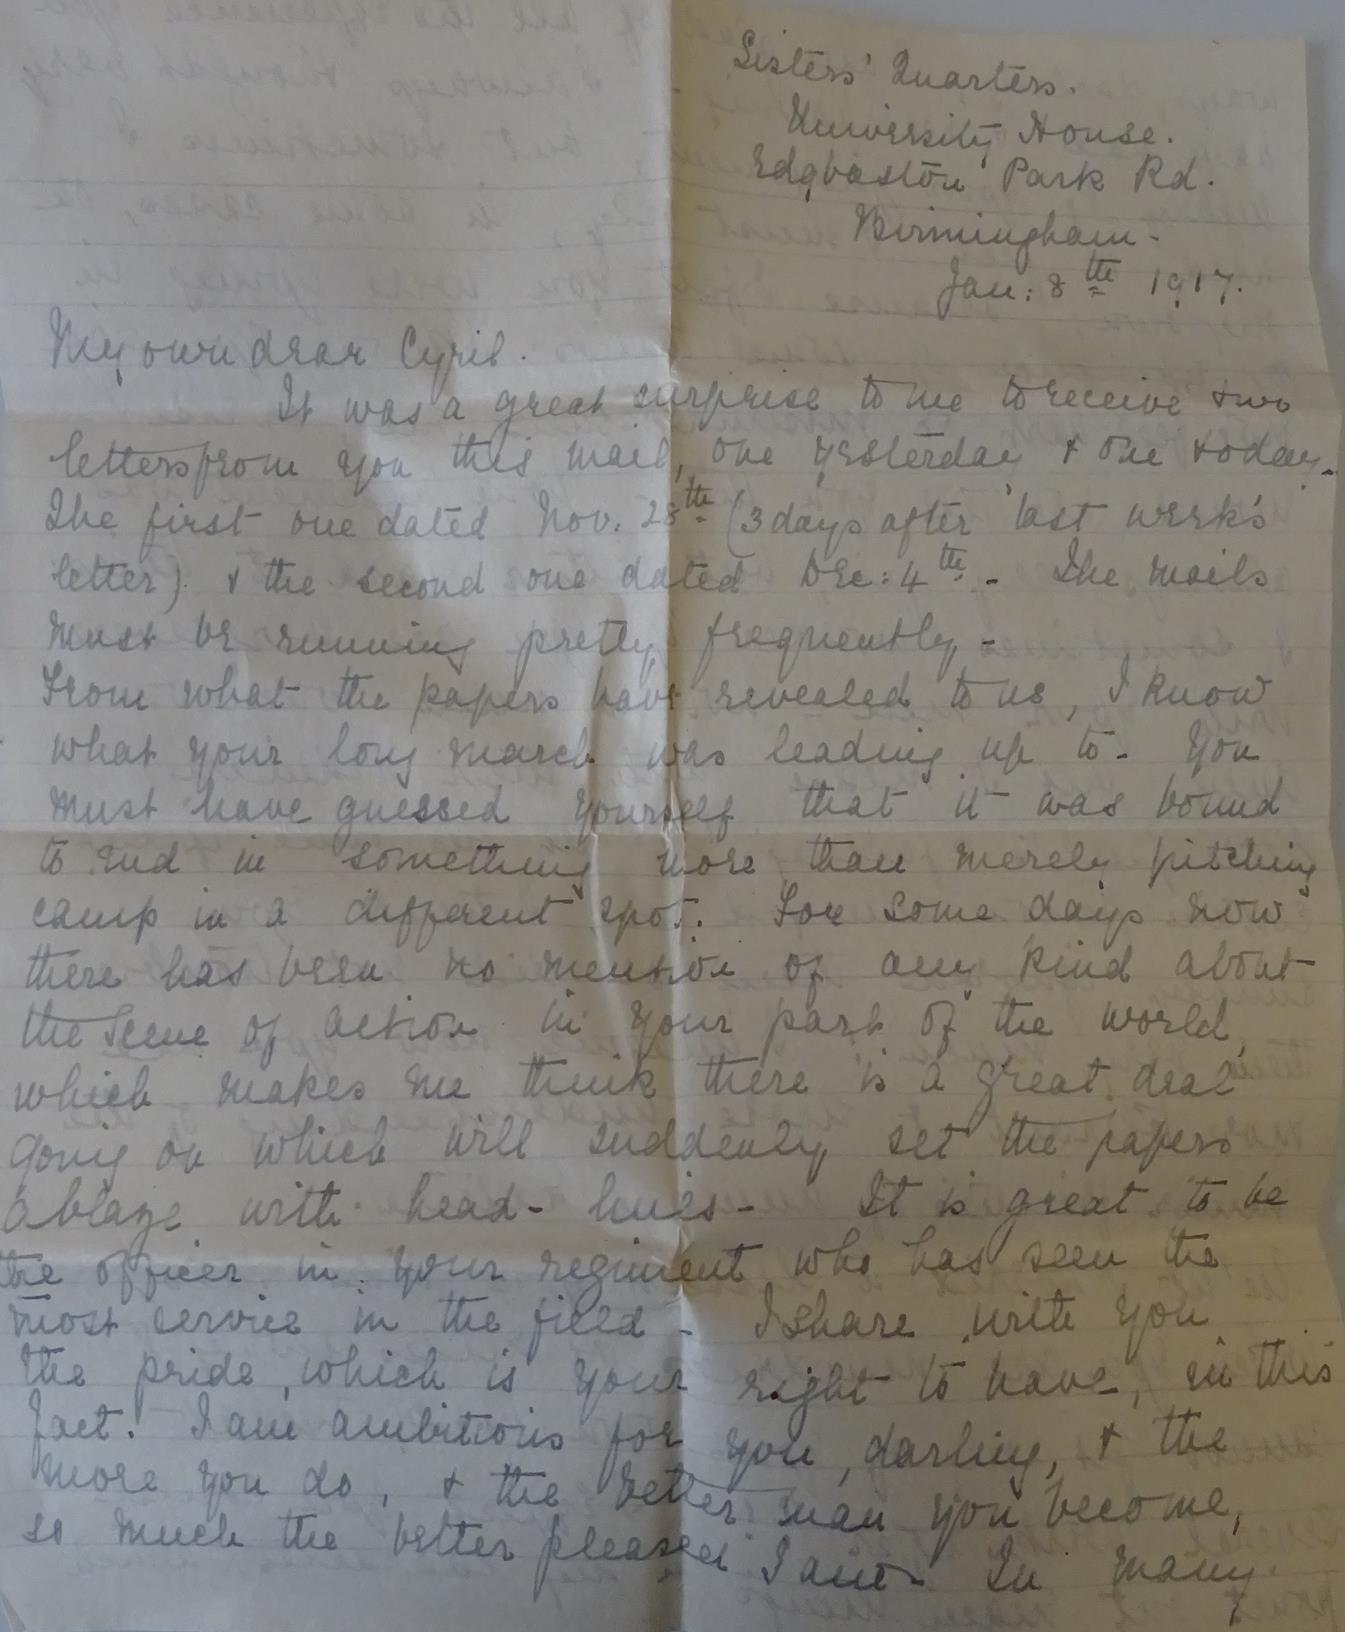 Sisters' Quarters.
University House.
Edgbaston Park Rd.
Birmingham.
Jan: 8th 1917.
My own dear Cyril.
It was a great surprise to me to receive two
letters from you this mail, one yesterday & one today.
The first one dated Nov. 28th (3 days after last week's
letter) & the second one dated Dec: 4th - The mails
must be running pretty frequently -
From what the papers have revealed to us, I know
what your long march was leading up to - You
must have guessed yourself that it was bound
to end in something more than merely pitching
camp in a different spot. For some days now
there has been no mention of any kind about
the scene of action in your part of the world,
which makes me think there is a great deal
going on which will suddenly set the papers
ablaze with head-lines - It is great to be
the officer in your regiment who has seen the
most service in the field - I share with you
the pride, which is your right to have, in this
fact. I am ambitious for you, darling, & the
more you do, & the better man you become,
so much the better pleased I am - In many